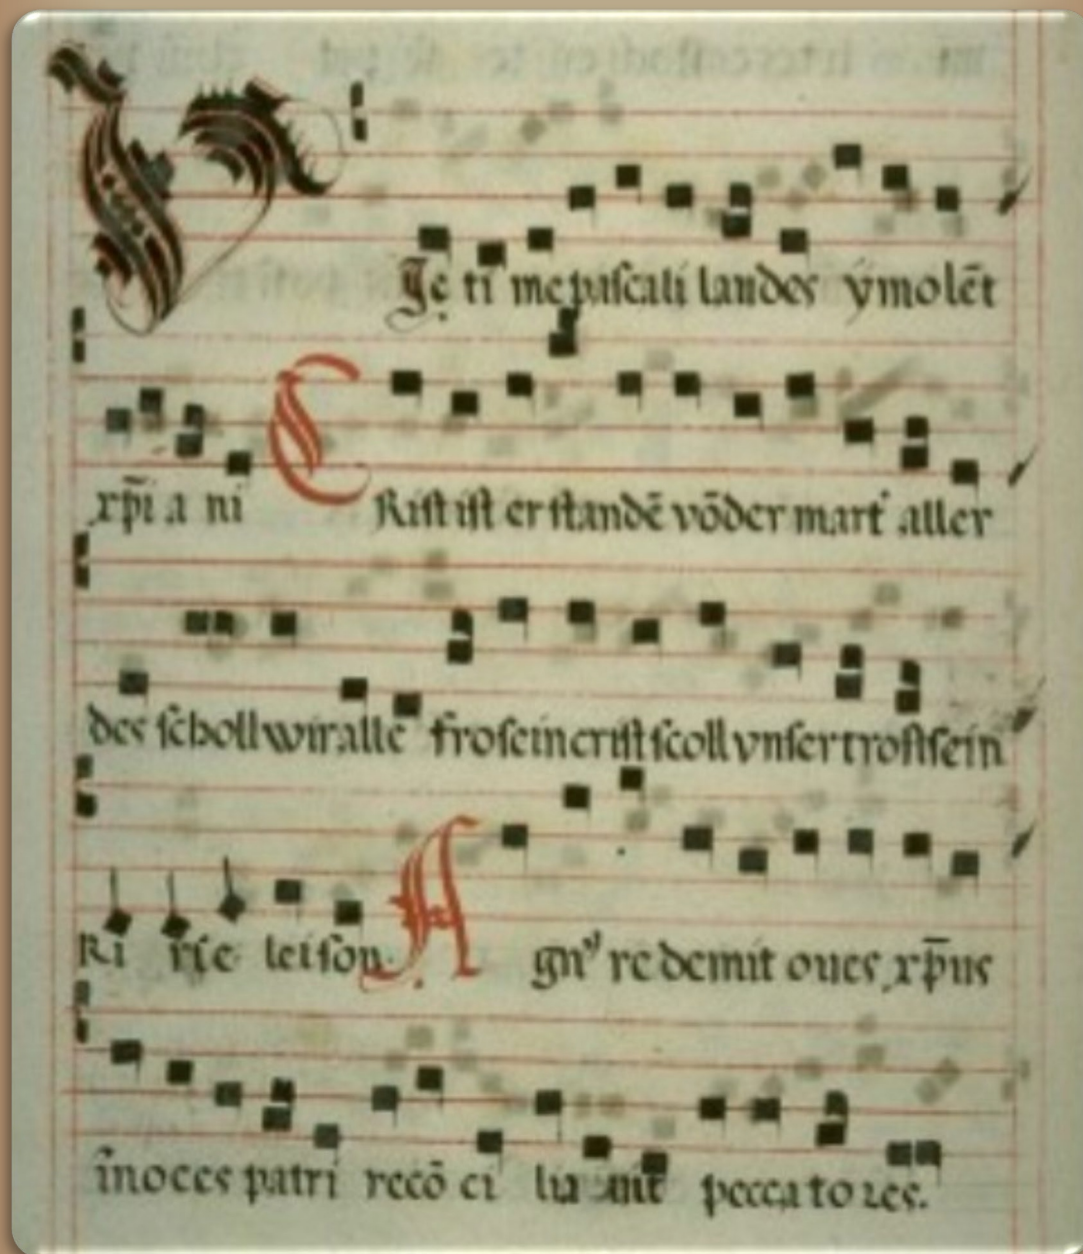 VJc ti me pascali laudes ymolēt
xp̄i a ni CRist ist erstandē vōder mart aller
des scholl wir alle fro sein crist scoll vnser trost sein
Ki rie leison. Agn⁹ redemit oues xp̄us
īnoces patri recō ci lia uit peccato res.